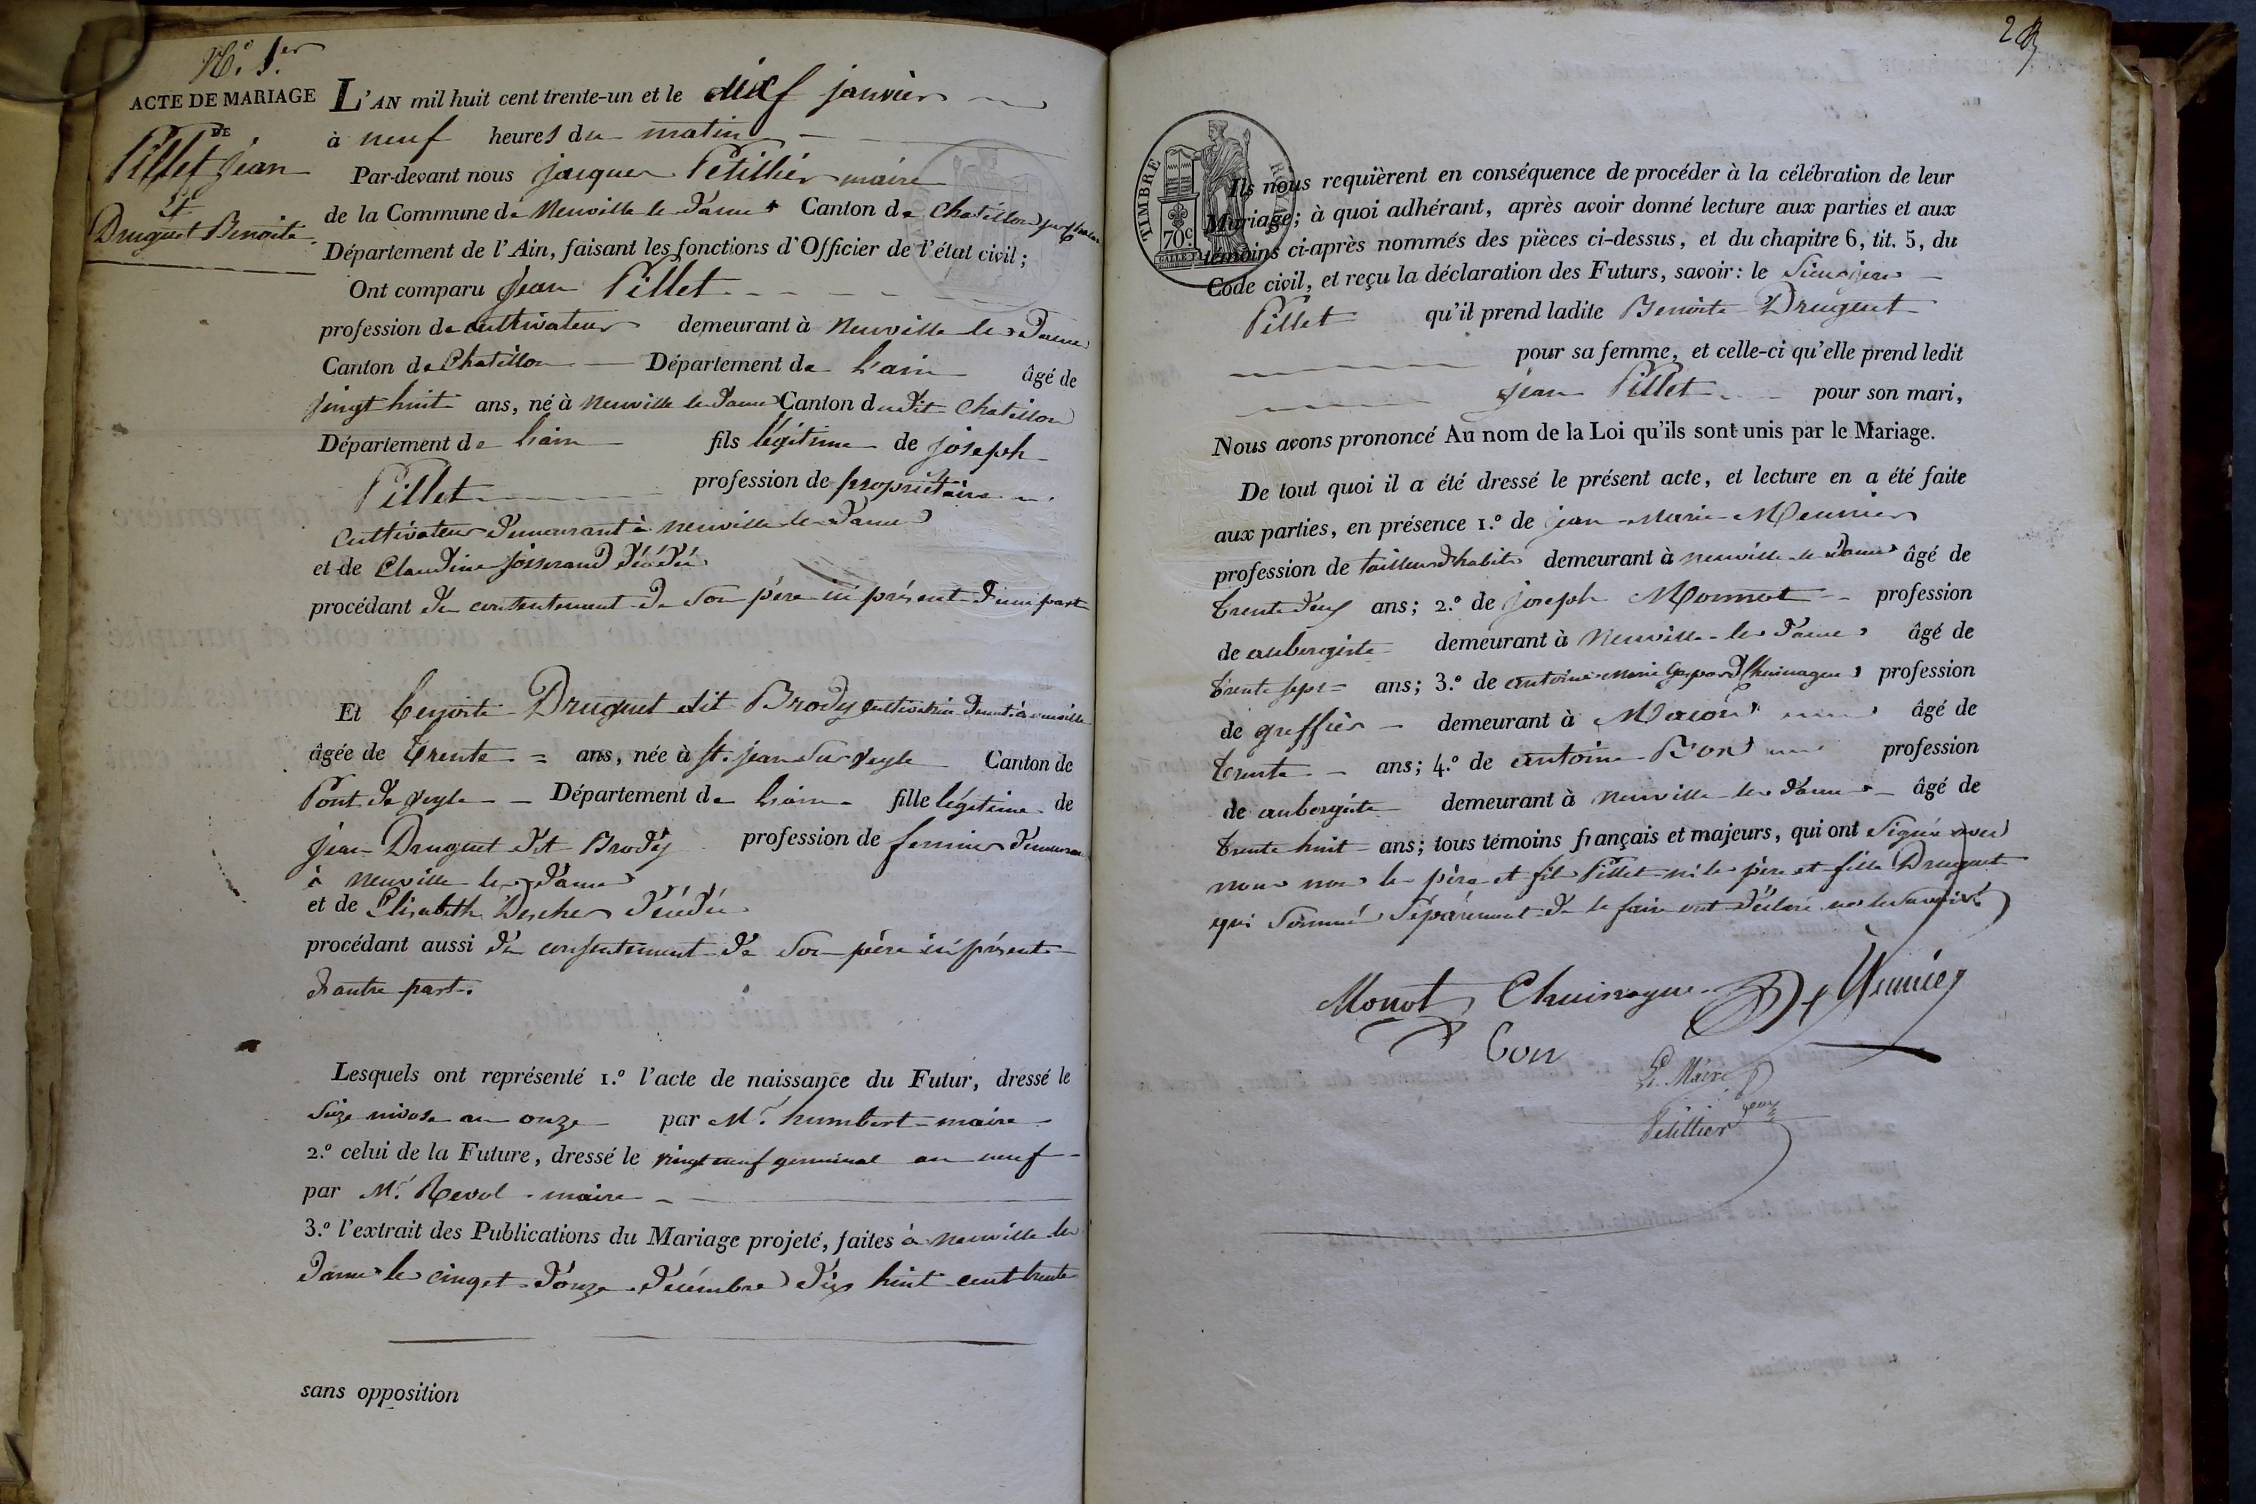 N.º 1.er
ACTE DE MARIAGE
DE
Pillet Jean
Et
Druguet Benoite
L'AN mil huit cent trente-un et le janvier
à neuf heures du matin
Par-devant nous jacques Petillier maire
de la Commune de Neuville le dames Canton de Chatillon
Département de l'Ain, faisant les fonctions d'Officier de l'état civil;
Ont comparu Jean Pillet
profession de cultivateur demeurant à Neuville les Dames
Canton de Chatillon Département de L'ain âgé de
vingt huit ans, né à Neuville les dames Canton dudit Chatillon
Département de L'ain fils légitime de joseph
Pillet profession de propriétaire
cultivateur demeurant à Neuville les dames
et de Claudine joisserand dédédée
procédant du consentement de son père ici présent d'une part
Et Benoite Druguet dit Brody cultivatrice demt. à neuville
âgée de trente ans, née à St. jean sur veyle Canton de
Pont de veyle Département de L'ain fille légitime de
jean Druguet dit Brody profession de fermier demeurant
à Neuville les dames
et de Elisabeth décédée
procédant aussi du consentement de son père ici présent
d'autre part.
Lesquels ont représenté 1.º l'acte de naissance du Futur, dressé le
seize nivose an onze par M.r humbert maire
2.º celui de la Future, dressé le vingt neuf germinal an neuf
par M.r Revol maire
3.º l'extrait des Publications du Mariage projeté, faites à neuville les
dames le cinq et douze décembre dix huit cent trente
sans opposition
TIMBRE ROYAL
70c
Ils nous requièrent en conséquence de procéder à la célébration de leur
Mariage; à quoi adhérant, après avoir donné lecture aux parties et aux
témoins ci-après nommés des pièces ci-dessus, et du chapitre 6, tit. 5, du
Code civil, et reçu la déclaration des Futurs, savoir: le sieur jean
Pillet qu'il prend ladite Benoite Druguet
pour sa femme, et celle-ci qu'elle prend ledit
jean Pillet pour son mari,
Nous avons prononcé Au nom de la Loi qu'ils sont unis par le Mariage.
De tout quoi il a été dressé le présent acte, et lecture en a été faite
aux parties, en présence 1.º de jean Marie Meunier
profession de tailleur d'habits demeurant à neuville les dames âgé de
trente deux ans; 2.º de joseph Monnot profession
de aubergiste demeurant à Neuville les dames âgé de
trente sept ans; 3.º de antoine Marie Gaspard Chuinague profession
de greffier demeurant à Macon âgé de
trente ans; 4.º de antoine Bon profession
de aubergiste demeurant à neuville les dames âgé de
trente huit ans; tous témoins français et majeurs, qui ont signé avec
nous non le père et fils Pillet ni le père et fille Druguet
qui sommés séparément de le faire ont déclaré ne le savoir.
Monot Chuinague Meunier
Bon
Le Maire
Petillier